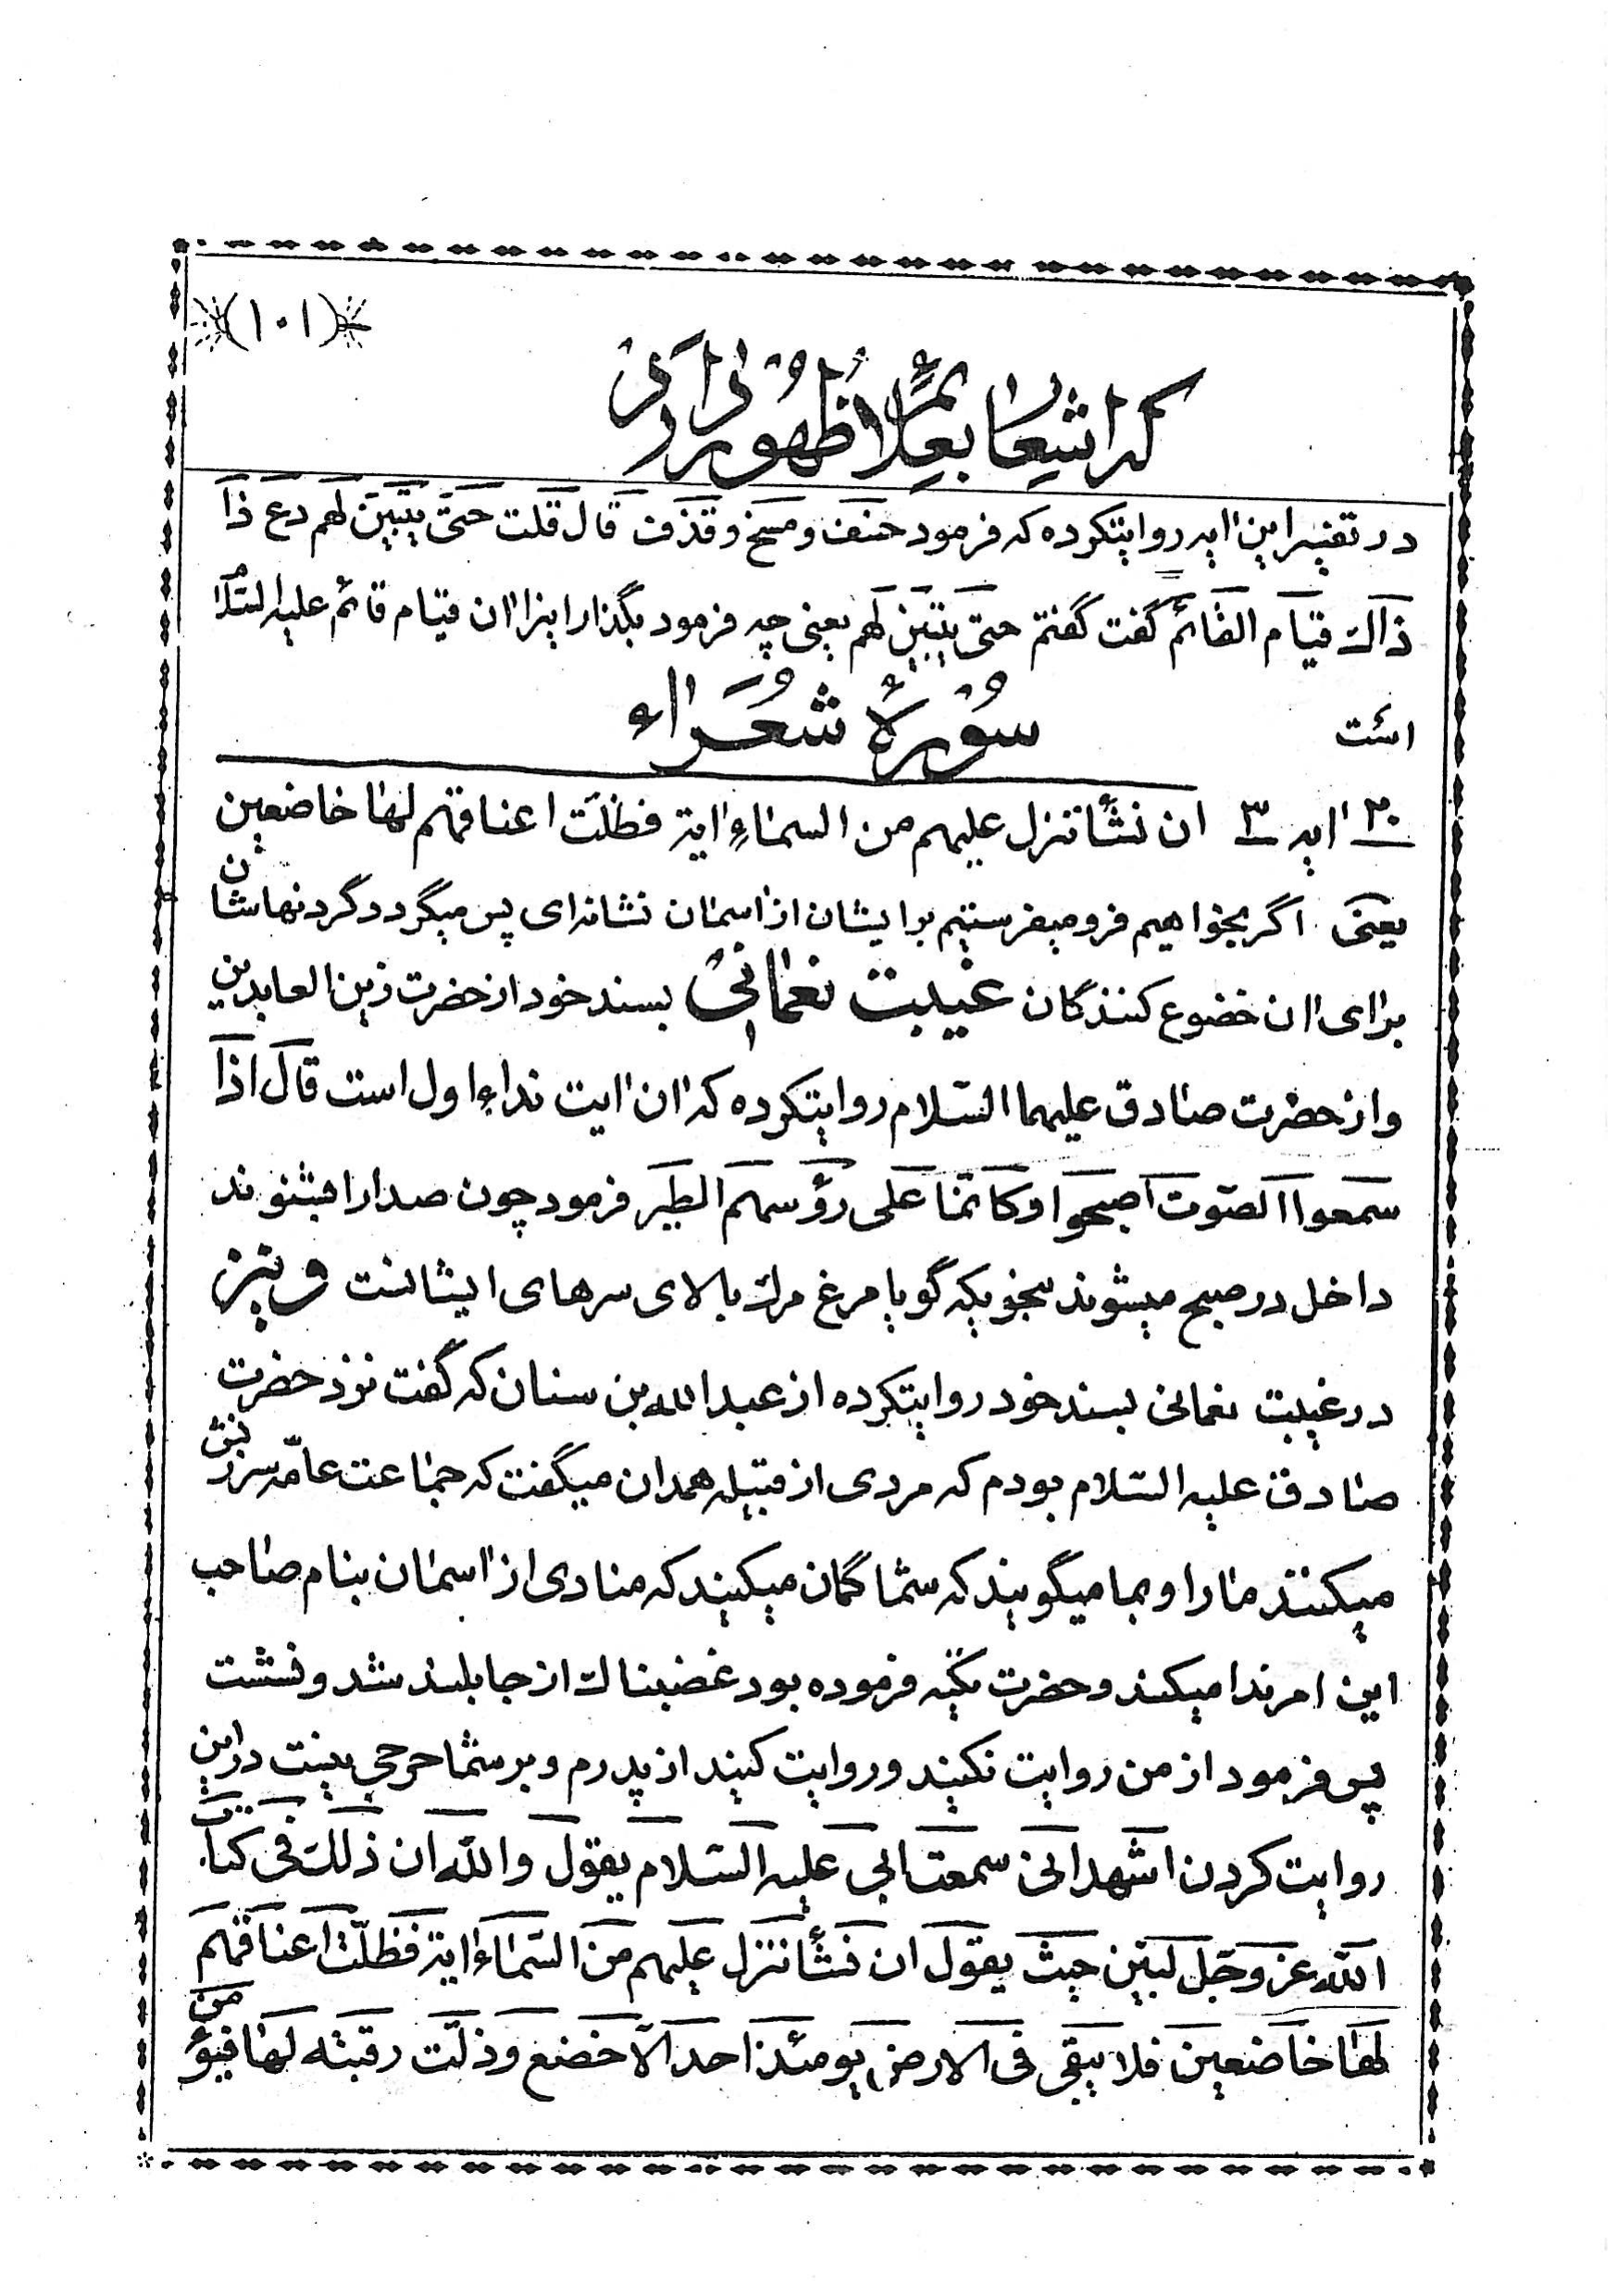 (۱۰۱)
که اشعار بعلائم ظهور دارد
در تفسیر این ایه روایتکرده که فرمود خسف و مسخ و قذف قال قلت حتی یتبین لهم دع ذا
ذاک قیام القائم گفت گفتم حتی یتبین لهم یعنی چه فرمود بگذار اینرا ان قیام قائم علیه السلام
است
سوره شعراء
۳۰ ایه ۳ ان نشأ ننزل علیهم من السماء ایة فظلت اعناقهم لها خاضعین
یعنی اگر بخواهیم فرو میفرستیم بر ایشان از اسمان نشانه‌ای پس میگردد گردنهاشان
برای ان خضوع کنندگان غیبت نعمانی بسند خود از حضرت زین العابدین
و از حضرت صادق علیهما السّلام روایتکرده که ان ایت نداء اول است قال اذا
سمعوا الصّوت اصبحوا و کانّما علی رؤسهم الطیر فرمود چون صدا را میشنوند
داخل در صبح میشوند بنحویکه گویا مرغ مرگ بالای سرهای ایشانست و نیز
در غیبت نعمانی بسند خود روایتکرده از عبدالله بن سنان که گفت نزد حضرت
صادق علیه السّلام بودم که مردی از قبیله همدان میگفت که جماعت عامّه سرزنش
میکنند ما را و بما میگویند که شما گمان میکنید که منادی از اسمان بنام صاحب
این امر ندا میکند و حضرت تکیه فرموده بود غضبناک از جا بلند شد و نشست
پس فرمود از من روایت نکنید و روایت کنید از پدرم و بر شما حرجی نیست در این
روایت کردن اشهد انی سمعت ابی علیه السّلام یقول والله ان ذلک فی کتاب
الله عز و جل لبیّن حیث یقول ان نشأ ننزل علیهم من السّماء ایة فظلّت اعناقهم
لها خاضعین فلا یبقی فی الارض یومئذ احد الّا خضع و ذلّت رقبته لها فیؤمن